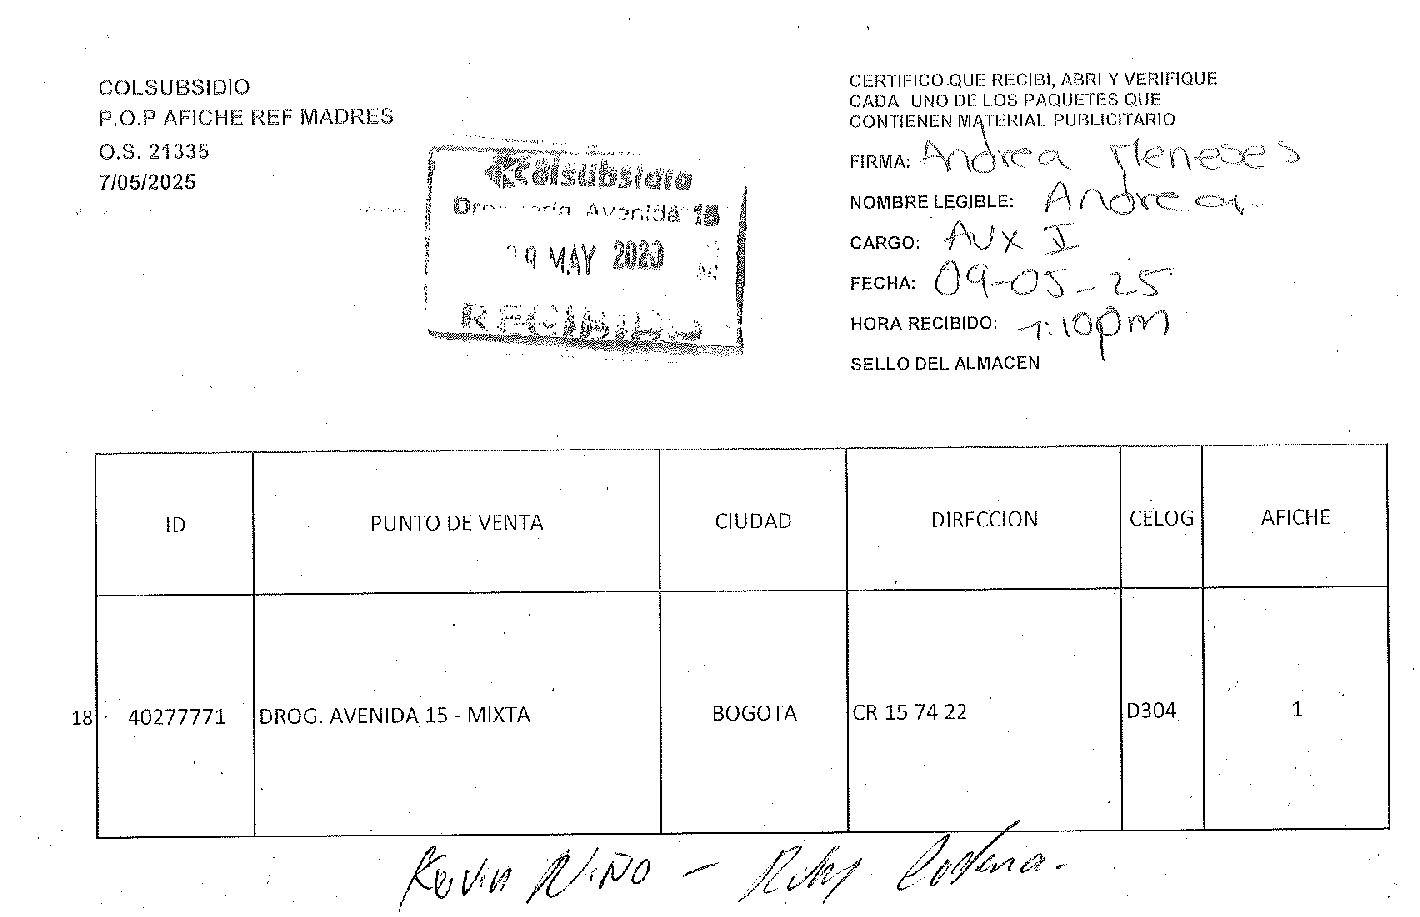 COLSUBSIDIO
P.O.P AFICHE REF MADRES
O.S. 21335
7/05/2025
Colsubsidio
Avenida 15
09 MAY
RECIBIDO
CERTIFICO QUE RECIBI, ABRI Y VERIFIQUE
CADA UNO DE LOS PAQUETES QUE
CONTIENEN MATERIAL PUBLICITARIO
FIRMA: Andrea Meneses
NOMBRE LEGIBLE: Andrea
CARGO: AUX I
FECHA: 09-05-25
HORA RECIBIDO: 1:10pm
SELLO DEL ALMACEN
ID PUNTO DE VENTA CIUDAD DIRECCION CELOG AFICHE
18 40277771 DROG. AVENIDA 15 - MIXTA BOGOTA CR 15 74 22 D304 1
Kevin NIÑO -